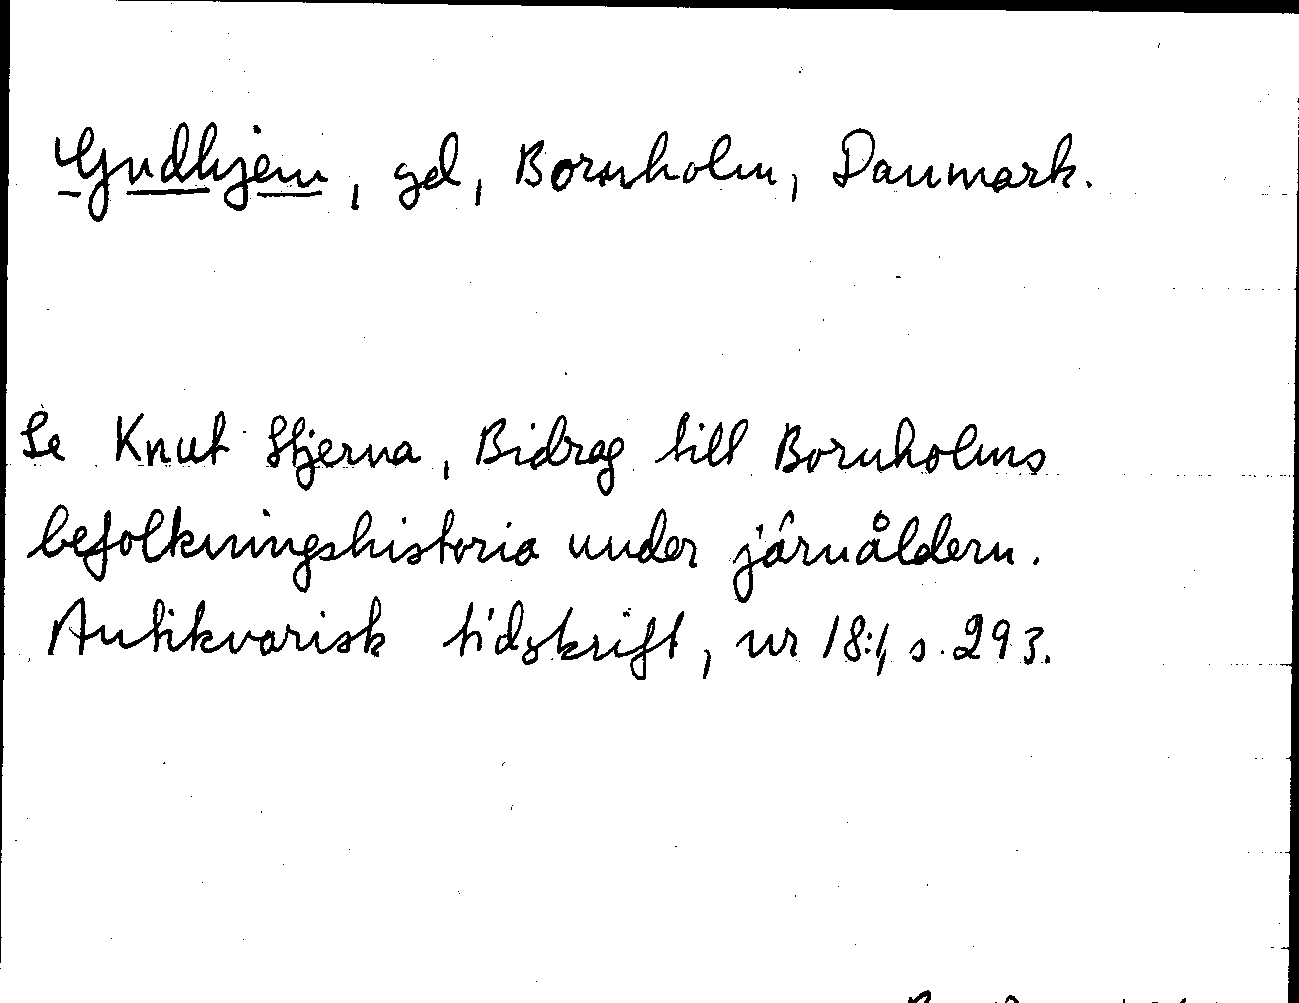 Gudhjem, gd, Bornholm, Danmark.
Se Knut Stjerna, Bidrag till Bornholms
befolkningshistoria under järnåldern.
Antikvarisk tidskrift, nr 18:1, s. 293.